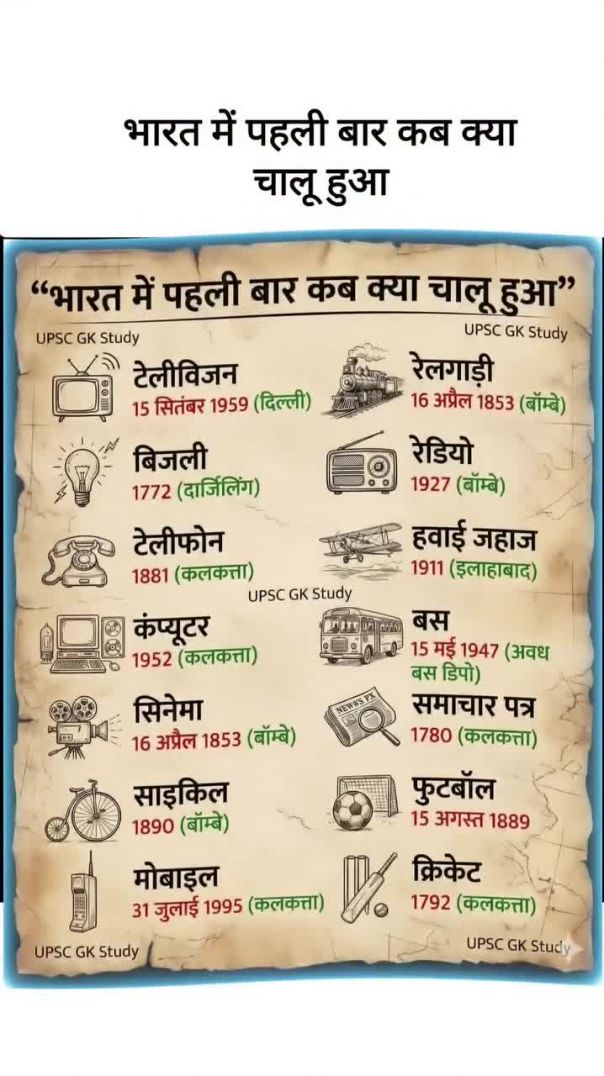 भारत में पहली बार कब क्या
चालू हुआ
“भारत में पहली बार कब क्या चालू हुआ”
UPSC GK Study
UPSC GK Study
टेलीविजन
15 सितंबर 1959 (दिल्ली)
रेलगाड़ी
16 अप्रैल 1853 (बॉम्बे)
बिजली
1772 (दार्जिलिंग)
रेडियो
1927 (बॉम्बे)
टेलीफोन
1881 (कलकत्ता)
हवाई जहाज
1911 (इलाहाबाद)
UPSC GK Study
कंप्यूटर
1952 (कलकत्ता)
बस
15 मई 1947 (अवध
बस डिपो)
सिनेमा
16 अप्रैल 1853 (बॉम्बे)
NEWWS PX
समाचार पत्र
1780 (कलकत्ता)
साइकिल
1890 (बॉम्बे)
फुटबॉल
15 अगस्त 1889
मोबाइल
31 जुलाई 1995 (कलकत्ता)
क्रिकेट
1792 (कलकत्ता)
UPSC GK Study
UPSC GK Study